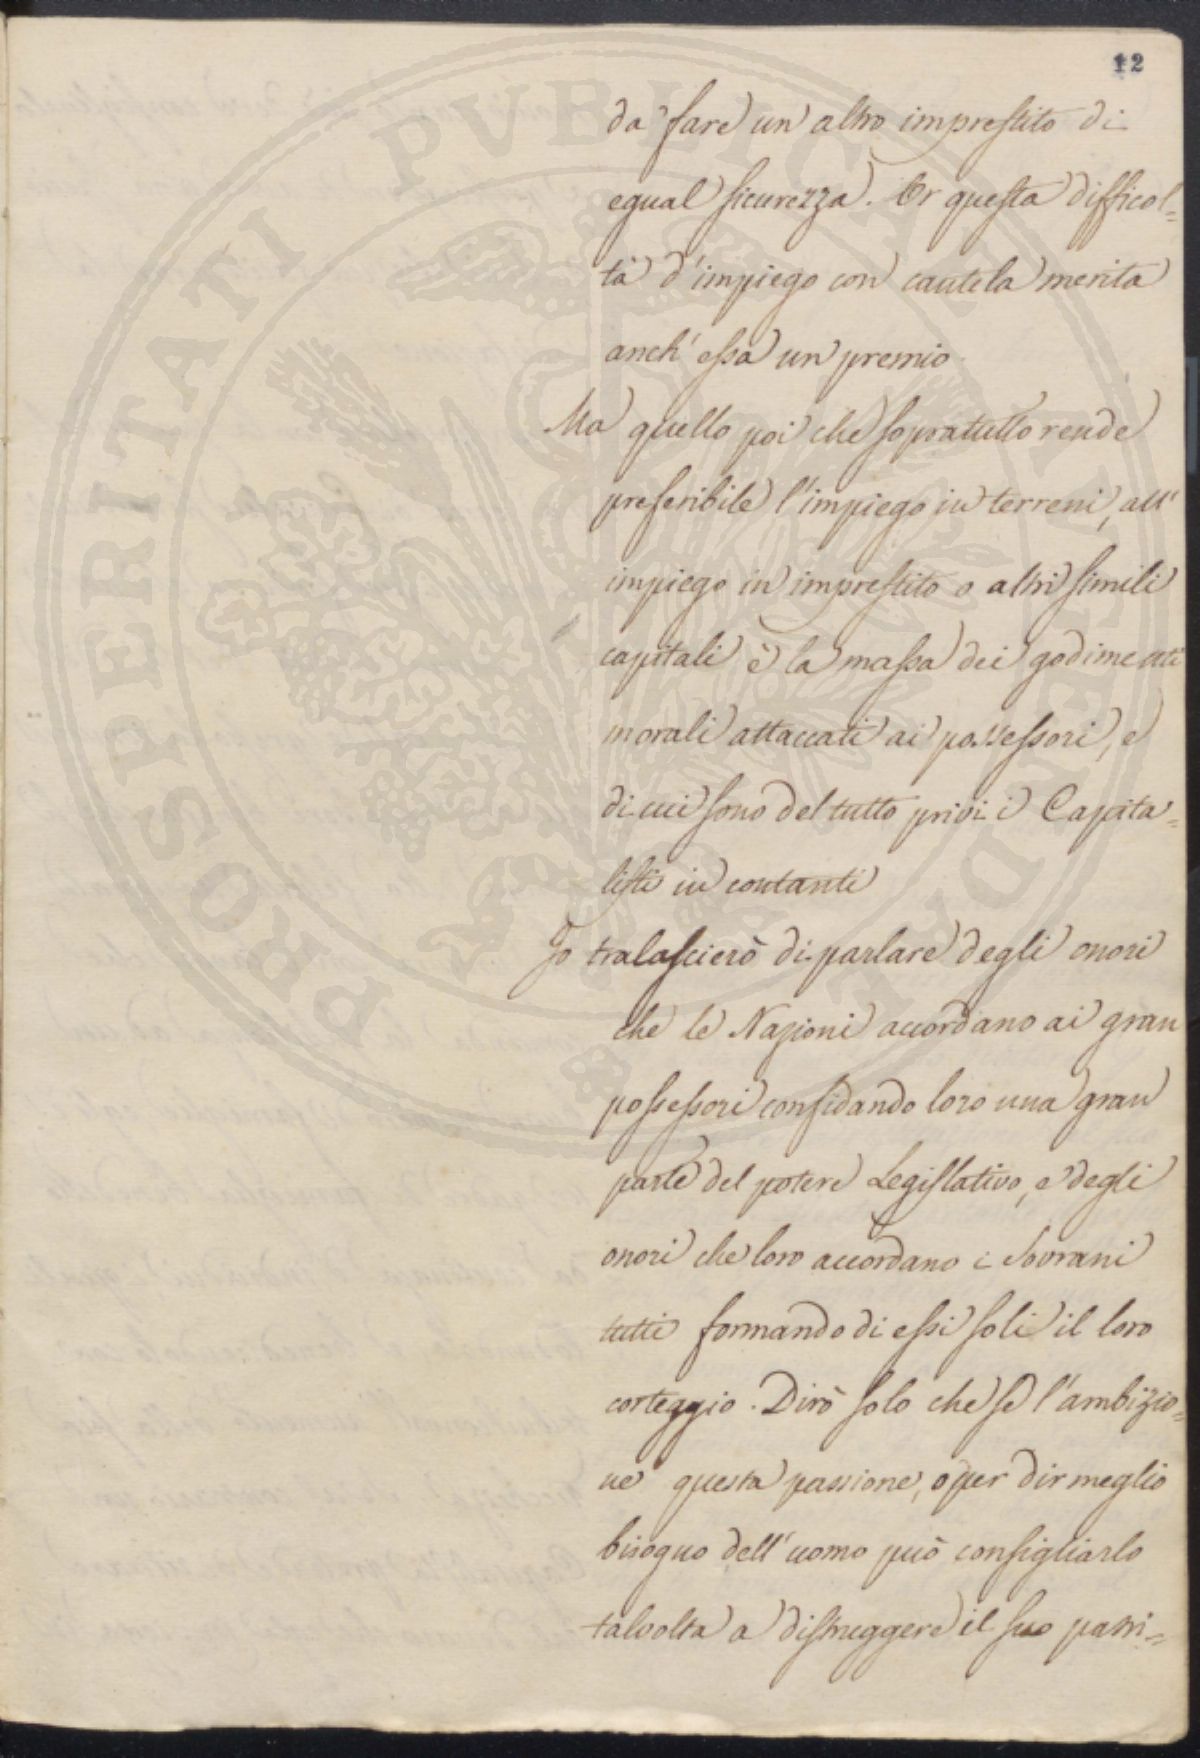 12
da fare un altro imprestito di
egual sicurezza. Or questa difficol=
tà d'impiego con cautela merita
anch'essa un premio.
Ma quello poi che sopratutto rende
preferibile l'impiego in terreni, all'
impiego in imprestito o altri simili
capitali è la massa dei godimenti
morali attaccati ai possessori, e
di cui sono del tutto privi i Capita=
listi in contanti
Io tralascierò di parlare degli onori
che le Nazioni accordano ai gran
possessori confidando loro una gran
parte del potere Legislativo, e degli
onori che loro accordano i Sovrani
tutti formando di essi soli il loro
corteggio. Dirò solo che se l'ambizio=
ne questa passione, o per dir meglio
bisogno dell'uomo può consigliarlo
talvolta a distruggere il suo patri=
PROSPERITATI PUBLICAE AUGENDAE